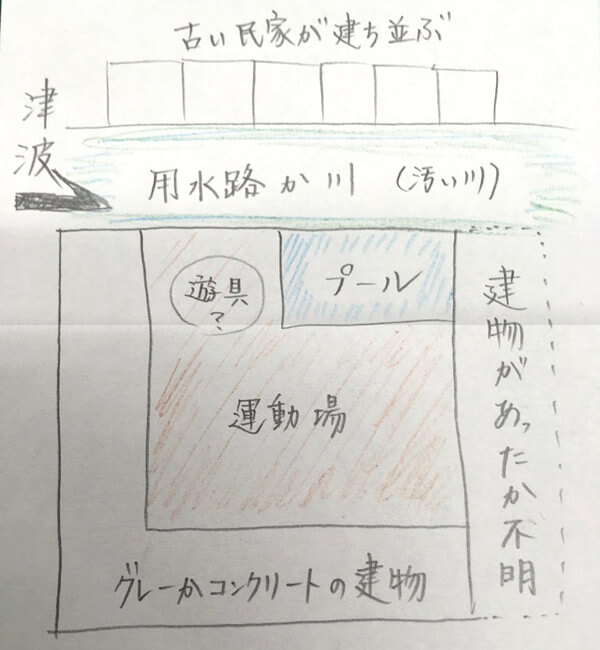 古い民家が建ち並ぶ
津波
用水路か川 (汚い川)
遊具
?
プール
運動場
建物があったか不明
グレーかコンクリートの建物